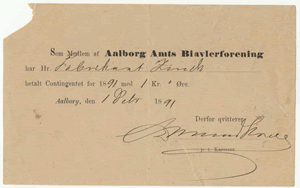 Som Medlem af Aalborg Amts Biavlerforening
har Hr. Fabrikant
betalt Contingentet for 1891 med 1 Kr. " Øre.
Aalborg, den 1 Febr 1891
Derfor qvitterer